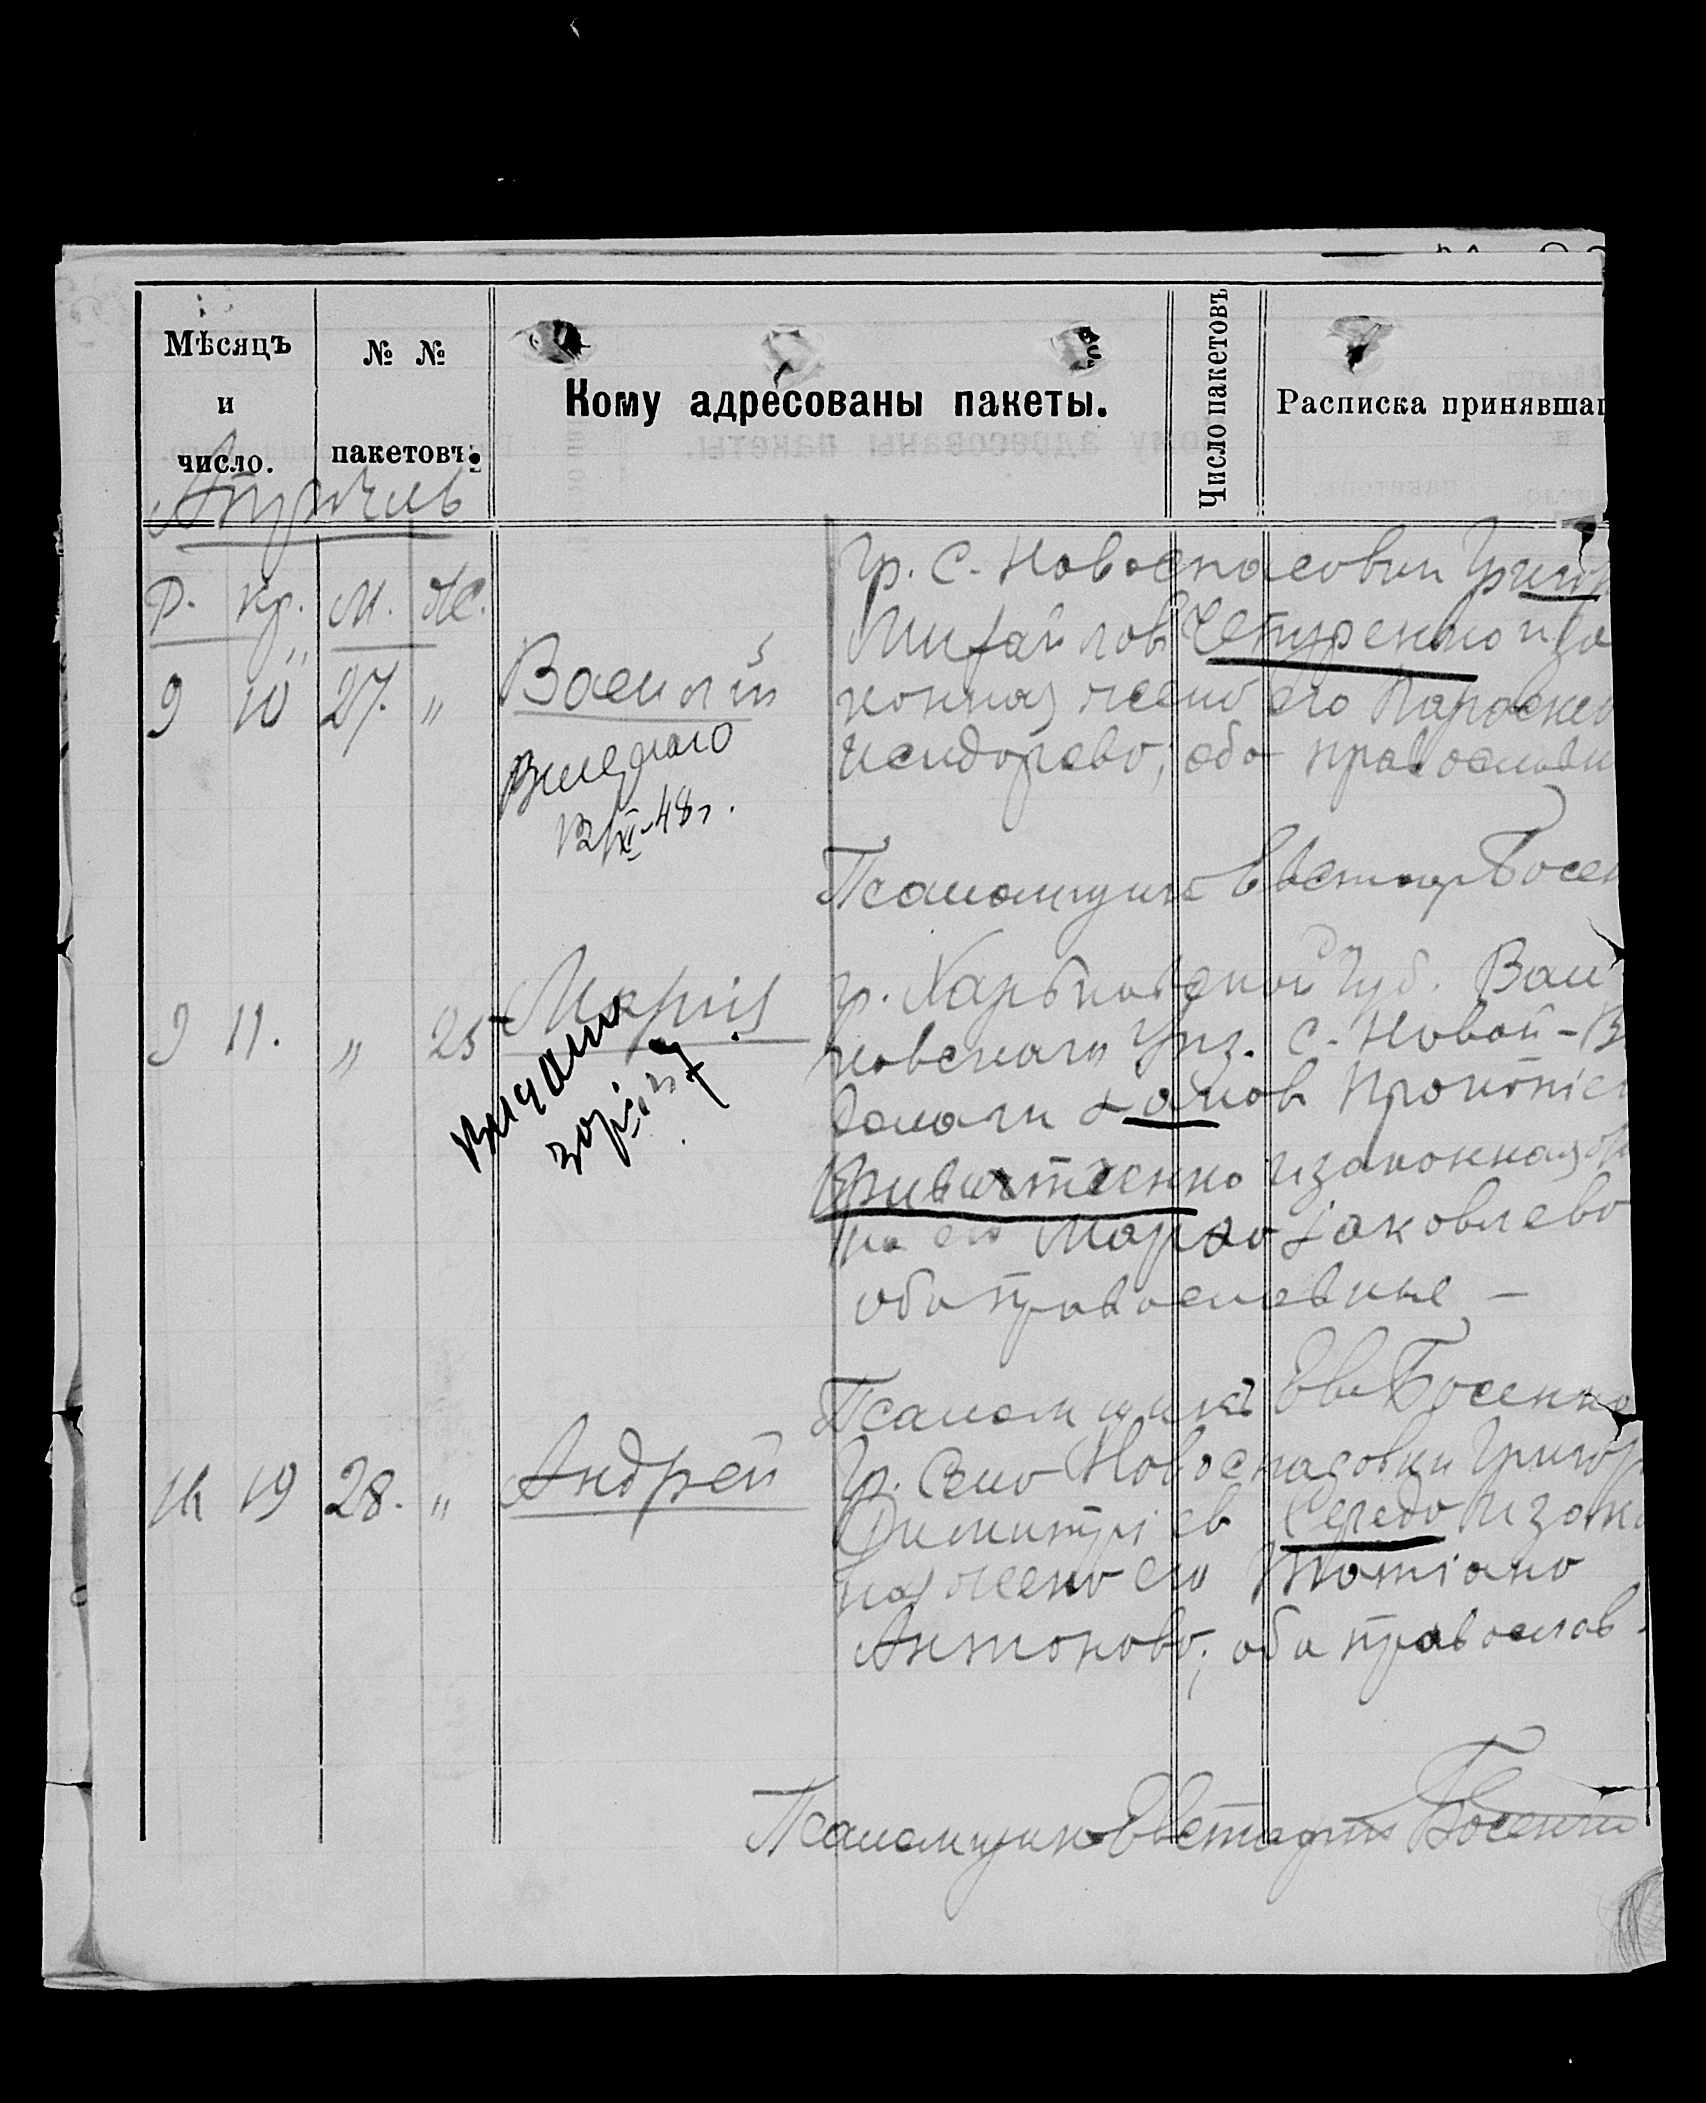 Мѣсяцъ и число.
№ № пакетовъ.
Кому адресованы пакеты.
Число пакетовъ
Расписка принявшаг
Апрѣль
Р. кр. М. Ж.
9 10 27. „
Василій
Гр. С. Новоспасовки Григор
Михайлов Чепуренко и за
конная жена его Параскев
Исидорова; оба православн
12/XI-48 г.
Псаломщик Евстафій Босен
9 11. „ 25
Марія
гр. Харьковской Губ. Вал
ковскаго Уѣз. С. Новой-В
Іаков Прокопіев
и законная же
на его Марѳа Іаковлева
оба православные —
Псаломщикъ Ев. Босенко
16 19 28. „
Андрей
Гр. Села Новоспасовки Григор
Димитріев Середа и закон
ная жена его Татіана
Антонова; оба православ-
Псаломщик Евстафій Босенко